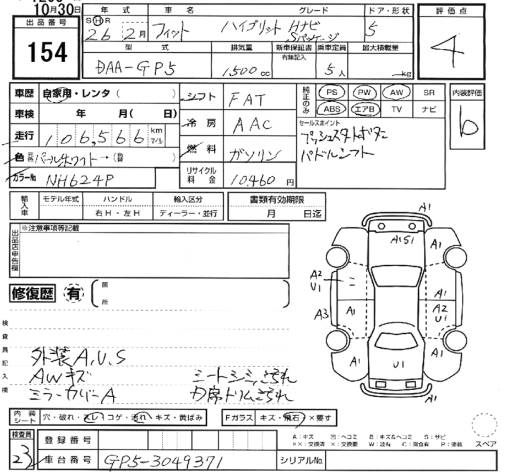 10月30日
出品番号 154
年式 車名 グレード ドア・形状 評価点
SHR 26年 2月 フィット ハイブリット Hナビ Sパッケージ 5 4
型式 排気量 新車保証書 有無記入 乗車定員 最大積載量
DAA-GP5 1500cc 5人 kg
車歴 自家用・レンタ( )
車検 年 月(日)
走行 106,566 km マイル
色 元色 パールホワイト→(替)
カラーNo NH624P
シフト FAT
冷房 AAC
燃料 ガソリン
リサイクル料金 10,460円
純正のみ PS PW AW SR
ABS エアB TV ナビ
セールスポイント
プッシュスタートボタン
パドルシフト
内装評価 b
輸入車 モデル年式 ハンドル 輸入区分 書類有効期限
右H・左H ディーラー・並行 月 日迄
出品店申告欄 ※注意事項等記載
修復歴 有 箇所
検査員記入欄
外装A,U,S
AWキズ
ミラーカバーA
シートシミ、こすれ
内張トリムこすれ
A1 A1S1 A1
A2 U1 A1
A3 A1 A2 U1
A1 U1 A1
内装シート 穴・破れ・スレ・コゲ・汚れ・キズ・黄ばみ
Fガラス キズ・飛石・X要す
検査員 23
登録番号
車台番号 GP5-3049371 シリアルNo.
スペア